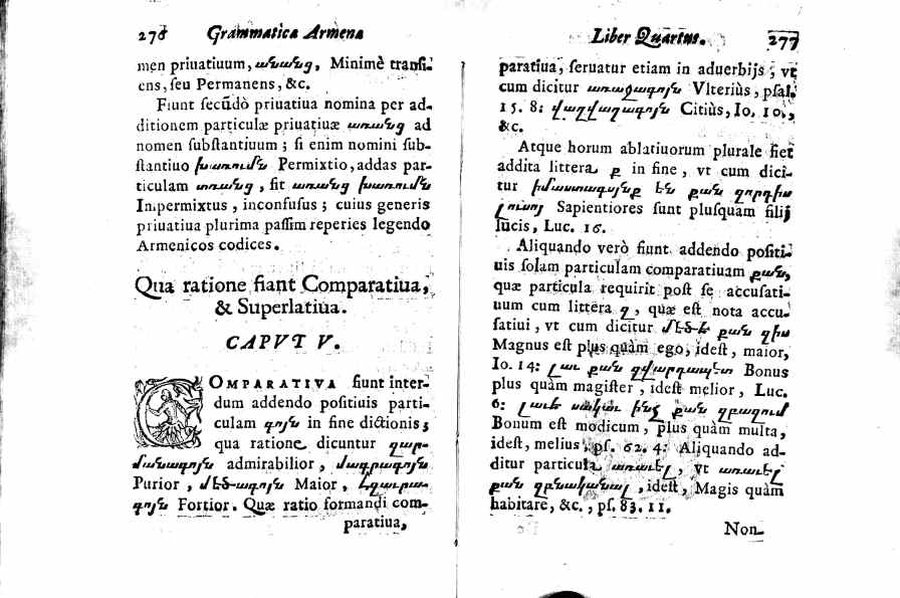 276 Grammatica Armena
men priuatiuum, անանց, Minimè transi-
ens, seu Permanens, &c.
Fiunt secūdò priuatiua nomina per ad-
ditionem particulæ priuatiuæ առանց ad
nomen substantiuum; si enim nomini sub-
stantiuo խառումն Permixtio, addas par-
ticulam առանց, fit առանց խառումն
Impermixtus, inconfusus; cuius generis
priuatiua plurima passim reperies legendo
Armenicos codices.
Qua ratione fiant Comparatiua,
& Superlatiua.
CAPVT V.
COMPARATIVA fiunt inter-
dum addendo positiuis parti-
culam գոյն in fine dictionis;
qua ratione dicuntur զար-
մանագոյն admirabilior, մաքրագոյն
Purior, մեծագոյն Maior, հզաւրա-
գոյն Fortior. Quæ ratio formandi com-
paratiua,
Liber Quartus. 277
paratiua, seruatur etiam in aduerbijs, vt
cum dicitur առաջագոյն Vlteriùs, psal.
15. 8: վաղվաղագոյն Citiùs, Io. 10.,
&c.
Atque horum ablatiuorum plurale fiet
addita littera ք in fine, vt cum dici-
tur իմաստագոյնք են քան զորդիս
լուսոյ Sapientiores sunt plusquam filij
lucis, Luc. 16.
Aliquando verò fiunt addendo positi-
uis solam particulam comparatiuam քան,
quæ particula requirit post se accusati-
uum cum littera զ, quæ est nota accu-
satiui, vt cum dicitur մեծ է քան զիս
Magnus est plus quàm ego, idest, maior,
Io. 14: լաւ քան զվարդապետ Bonus
plus quàm magister, idest melior, Luc.
6: լաւ է սակաւ ինչ քան զբազում
Bonum est modicum, plus quàm multa,
idest, melius, ps. 62. 4: Aliquando ad-
ditur particula առաւել, vt առաւել
քան զբնականալ, idest, Magis quàm
habitare, &c., ps. 83. 11.
Non